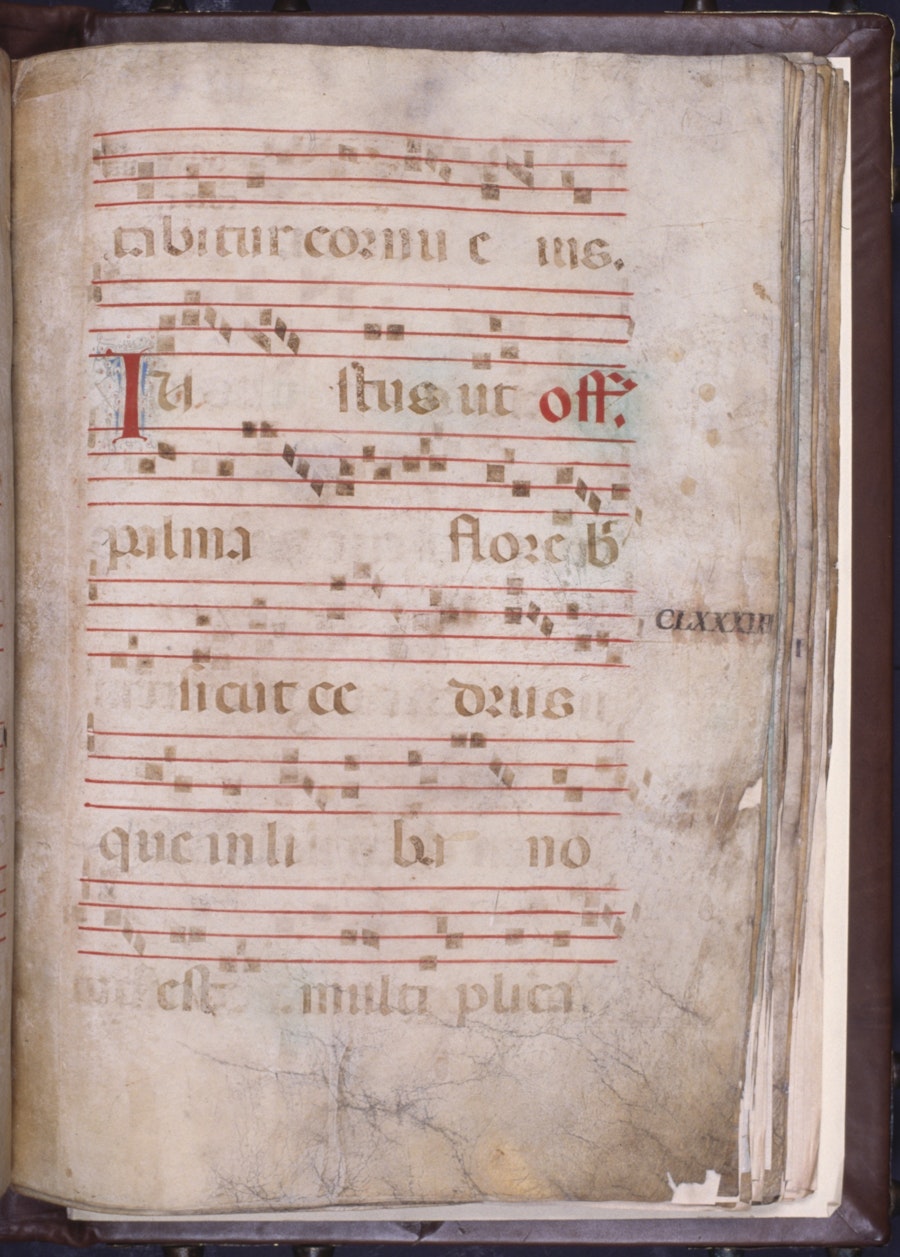 tabitur cornu e ius.
Iu stus ut off.
palma flore b̄
CLXXXIII
sicut ce drus
que in li ba no
est multi plica.